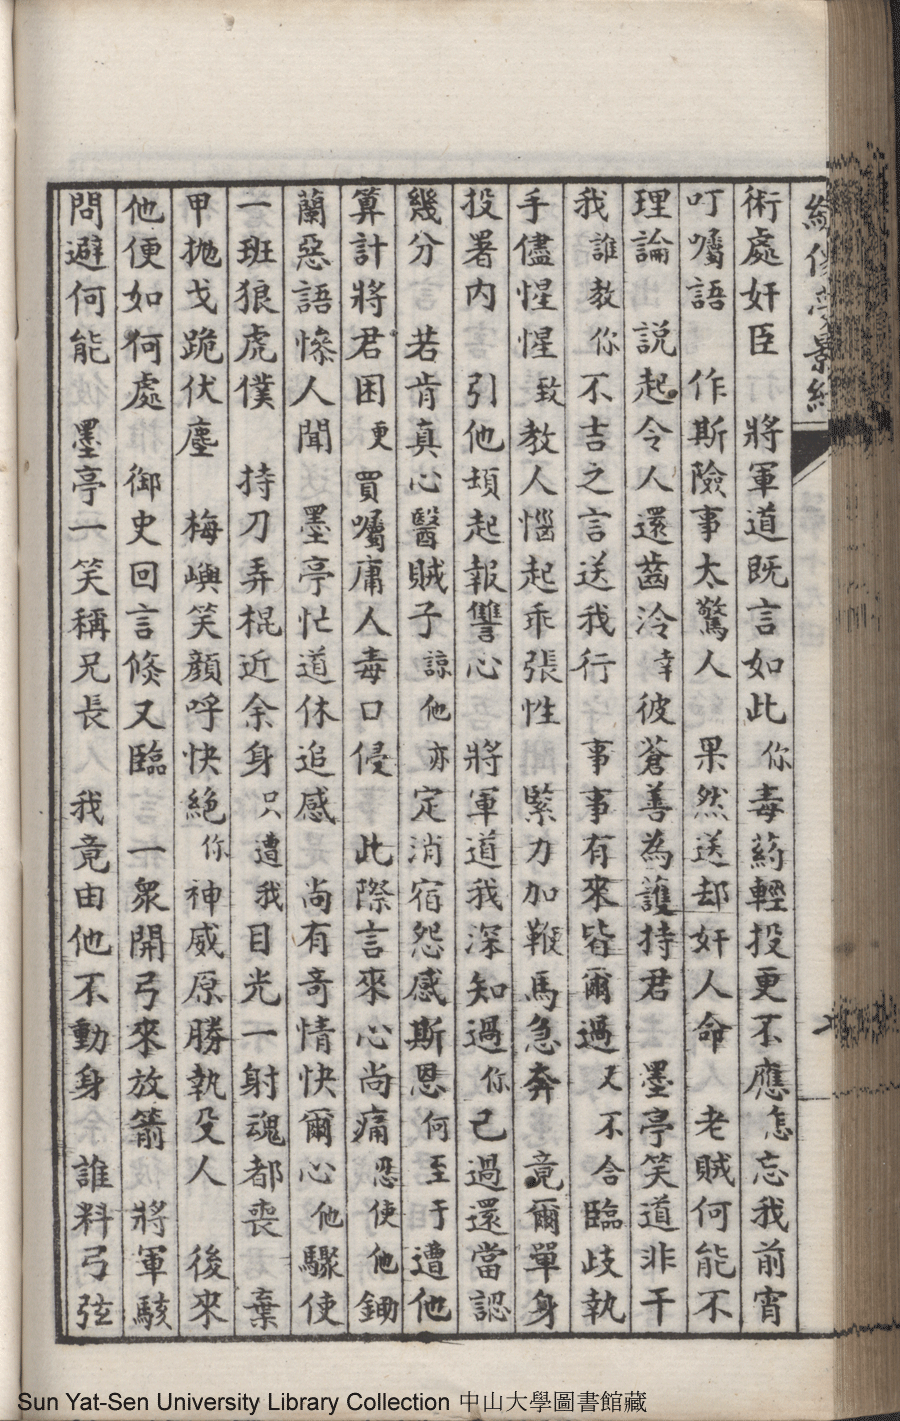 術處奸臣 將軍道既言如此 你毒葯輕投更不應 怎忘我前宵
叮囑語 作斯險事太驚人 果然送却奸人命 老賊何能不
理論 説起令人還齒冷 幸彼蒼善為護持君 墨亭笑道非干
我 誰教你不吉之言送我行 事事有來皆爾過 又不合臨歧執
手儘惺惺 致教人惱起乖張性 緊力加鞭馬急奔 竟爾單身
投署内 引他頓起報讐心 將軍道我深知過 你己過還當認
幾分 若肯真心醫賊子 諒他亦定消宿怨感斯恩 何至于遭他
算計將君困 更買囑庸人毒口侵 此際言來心尚痛 恐使他鋤
蘭惡語慘人聞 墨亭忙道休追感 尚有奇情快爾心 他驟使
一班狼虎僕 持刀弄棍近余身 只遭我目光一射魂都喪 棄
甲拋戈跪伏塵 梅嶼笑顏呼快絕 你神威原勝執殳人 後來
他便如何處 御史回言倐又臨 一衆開弓來放箭 將軍駭
問避何能 墨亭一笑稱兄長 我竟由他不動身 誰料弓弦
Sun Yat-Sen University Library Collection 中山大學圖書館藏